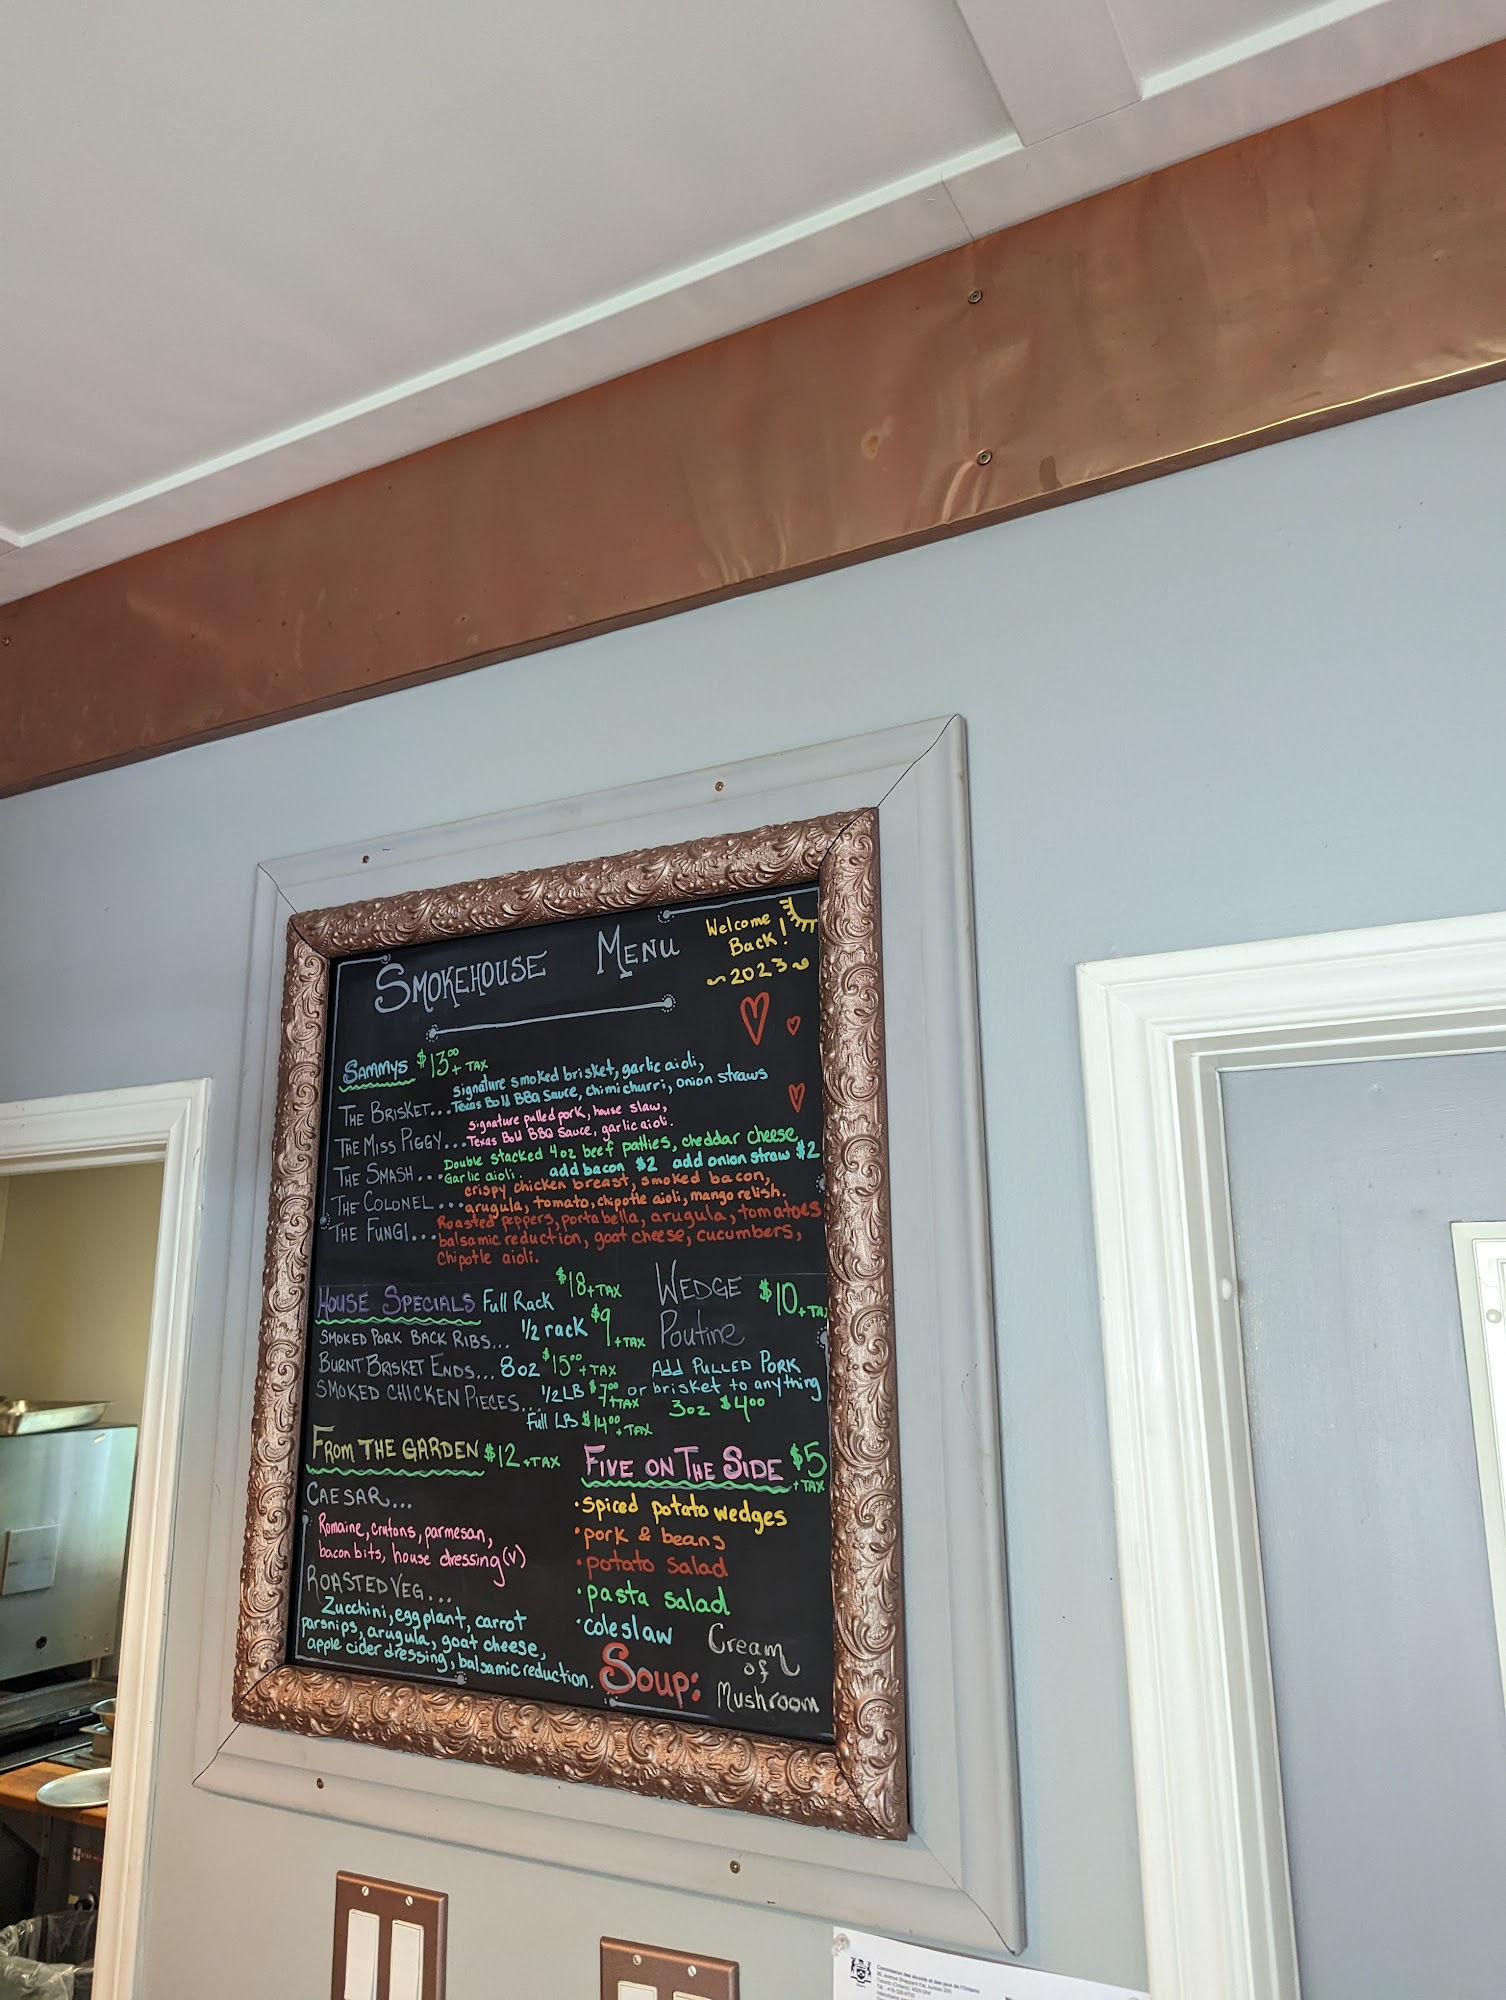 SMOKEHOUSE MENU
Welcome
Back!
~2023~
SAMMYS $13.00 + TAX
THE BRISKET... signature smoked brisket, garlic aioli,
Texas Bold BBQ Sauce, chimichurri, onion straws
THE MISS PIGGY... signature pulled pork, house slaw,
Texas Bold BBQ Sauce, garlic aioli.
THE SMASH... Double stacked 4oz beef patties, cheddar cheese
Garlic aioli. add bacon $2 add onion straw $2
THE COLONEL... crispy chicken breast, smoked bacon,
arugula, tomato, chipotle aioli, mango relish.
THE FUNGI... Roasted peppers, portabella, arugula, tomatoes
balsamic reduction, goat cheese, cucumbers,
Chipotle aioli.
HOUSE SPECIALS Full Rack $18 + TAX
SMOKED PORK BACK RIBS... 1/2 rack $9 + TAX
BURNT BRISKET ENDS... 8oz $15.00 + TAX
SMOKED CHICKEN PIECES... 1/2 LB $7.00 + TAX
Full LB $14.00 + TAX
WEDGE $10 + TAX
Poutine
ADD PULLED PORK
or brisket to anything
3oz $4.00
FROM THE GARDEN $12 + TAX
CAESAR...
Romaine, crutons, parmesan,
bacon bits, house dressing (v)
ROASTED VEG...
Zucchini, eggplant, carrot
parsnips, arugula, goat cheese,
apple cider dressing, balsamic reduction.
FIVE ON THE SIDE $5 + TAX
·spiced potato wedges
·pork & beans
·potato salad
·pasta salad
·coleslaw
SOUP: Cream
of
Mushroom
Commission des alcools et des jeux de l'Ontario